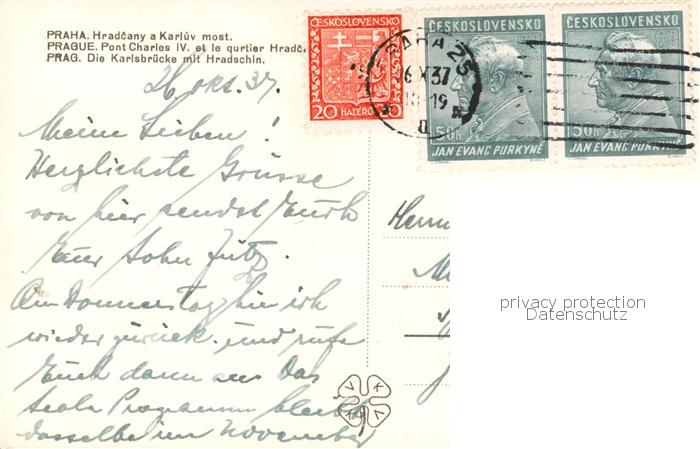 PRAHA. Hradčany a Karlův most.
PRAGUE. Pont Charles IV. et le qurtier Hradč
PRAG. Die Karlsbrücke mit Hradschin.
ČESKOSLOVENSKO
20 HALÉŘŮ 20
ČESKOSLOVENSKO
50h
JAN EVANG. PURKYNĚ
ČESKOSLOVENSKO
50h
JAN EVANG. PURKYNĚ
PRAHA 25
26 X 37
19
26 okt. 37.
Meine Lieben!
Herzlichste Grüsse
von hier sendet Euch
Euer Sohn Fritz.
Am Donnerstag bin ich
wieder zurück und rufe
Euch dann an. Das
Programm bleibt
dasselbe im November
privacy protection
Datenschutz
V K K V